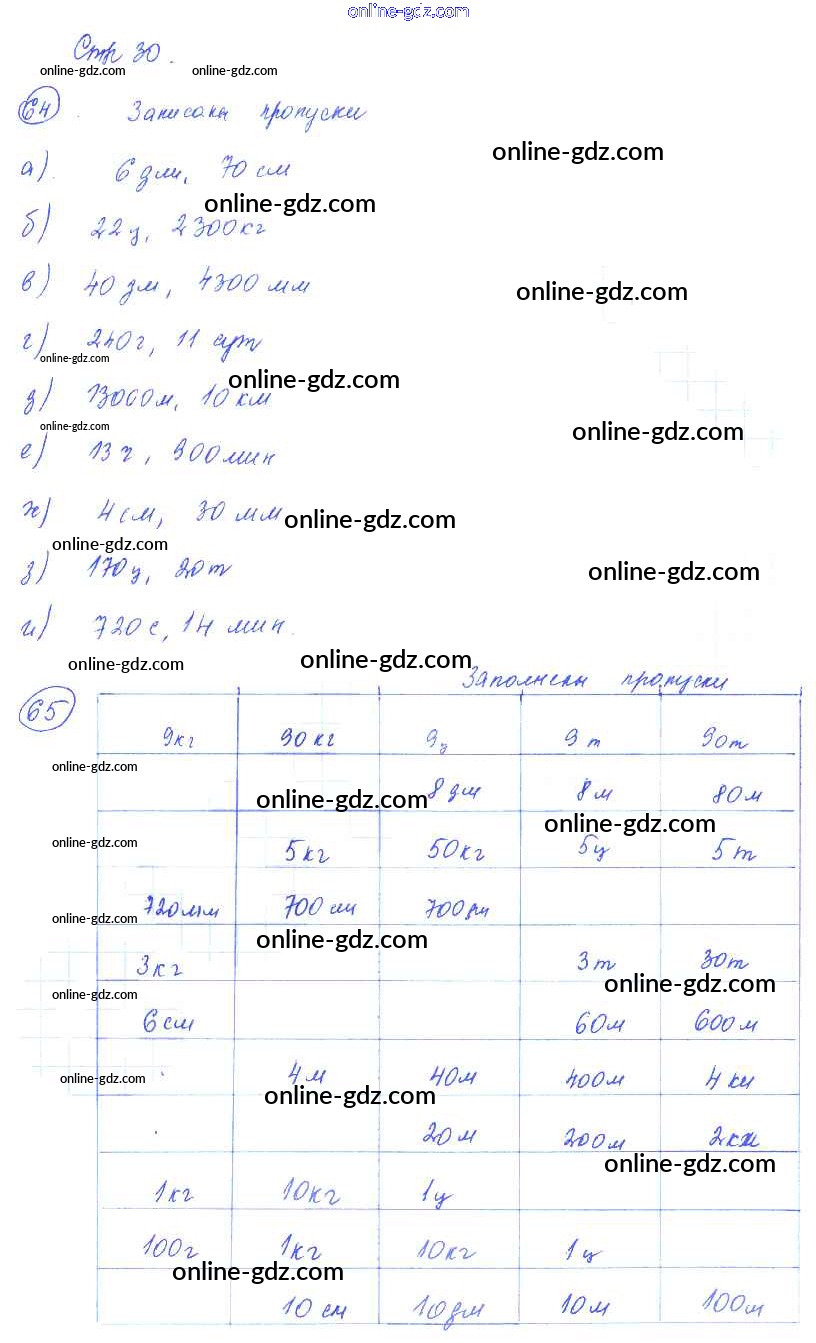 online-gdz.com
Стр 30.
online-gdz.com online-gdz.com
64. Записаны пропуски
online-gdz.com
а). 6 дм, 70 см
online-gdz.com
б) 22 ц, 2300 кг
в) 40 дм, 4300 мм
online-gdz.com
г) 240 г, 11 сут
online-gdz.com
online-gdz.com
д) 13000 м, 10 км
online-gdz.com
online-gdz.com
е) 13 г, 900 мин
ж) 4 см, 30 мм
online-gdz.com
online-gdz.com
з) 170 ц, 20 т
online-gdz.com
и) 720 с, 14 мин.
online-gdz.com
online-gdz.com
65 Заполнены пропуски
9 кг 90 кг 9 ц 9 т 90 т
online-gdz.com
8 дм 8 м 80 м
online-gdz.com
online-gdz.com
online-gdz.com
5 кг 50 кг 5 ц 5 т
720 мм 700 см 700 дм
online-gdz.com
online-gdz.com
3 кг 3 т 30 т
online-gdz.com
online-gdz.com
6 см 60 м 600 м
4 м 40 м 400 м 4 км
online-gdz.com
online-gdz.com
20 м 200 м 2 км
online-gdz.com
1 кг 10 кг 1 ц
100 г 1 кг 10 кг 1 ц
online-gdz.com
10 см 10 дм 10 м 100 м